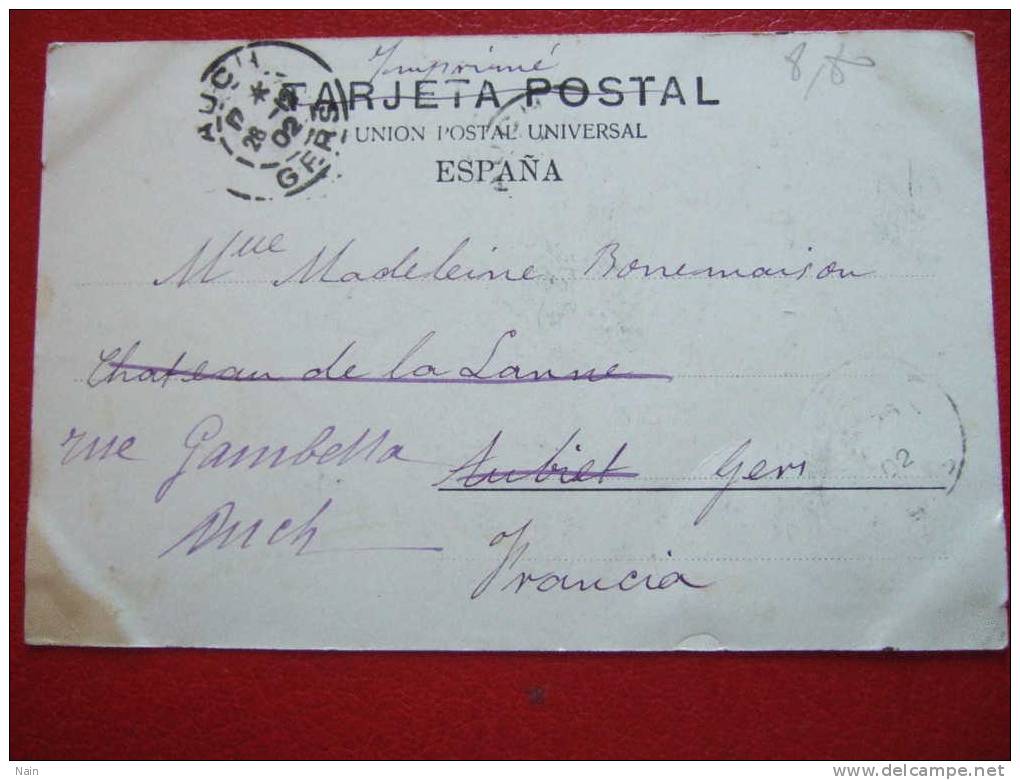 Imprimé
8,80
TARJETA POSTAL
UNION POSTAL UNIVERSAL
ESPAÑA
AUCH
28
02
GERS
Mlle Madeleine Bonnemaison
Chateau de la Lanne
rue Gambetta Aubiet Gers
Auch
Francia
02
Nain
www.delcampe.net